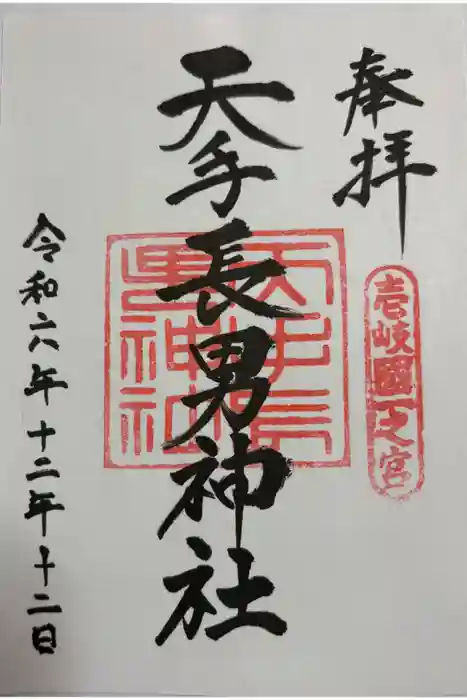 奉拝
壱岐國一之宮
天手長男神社
天手長
男神社
令和六年十二年十二日